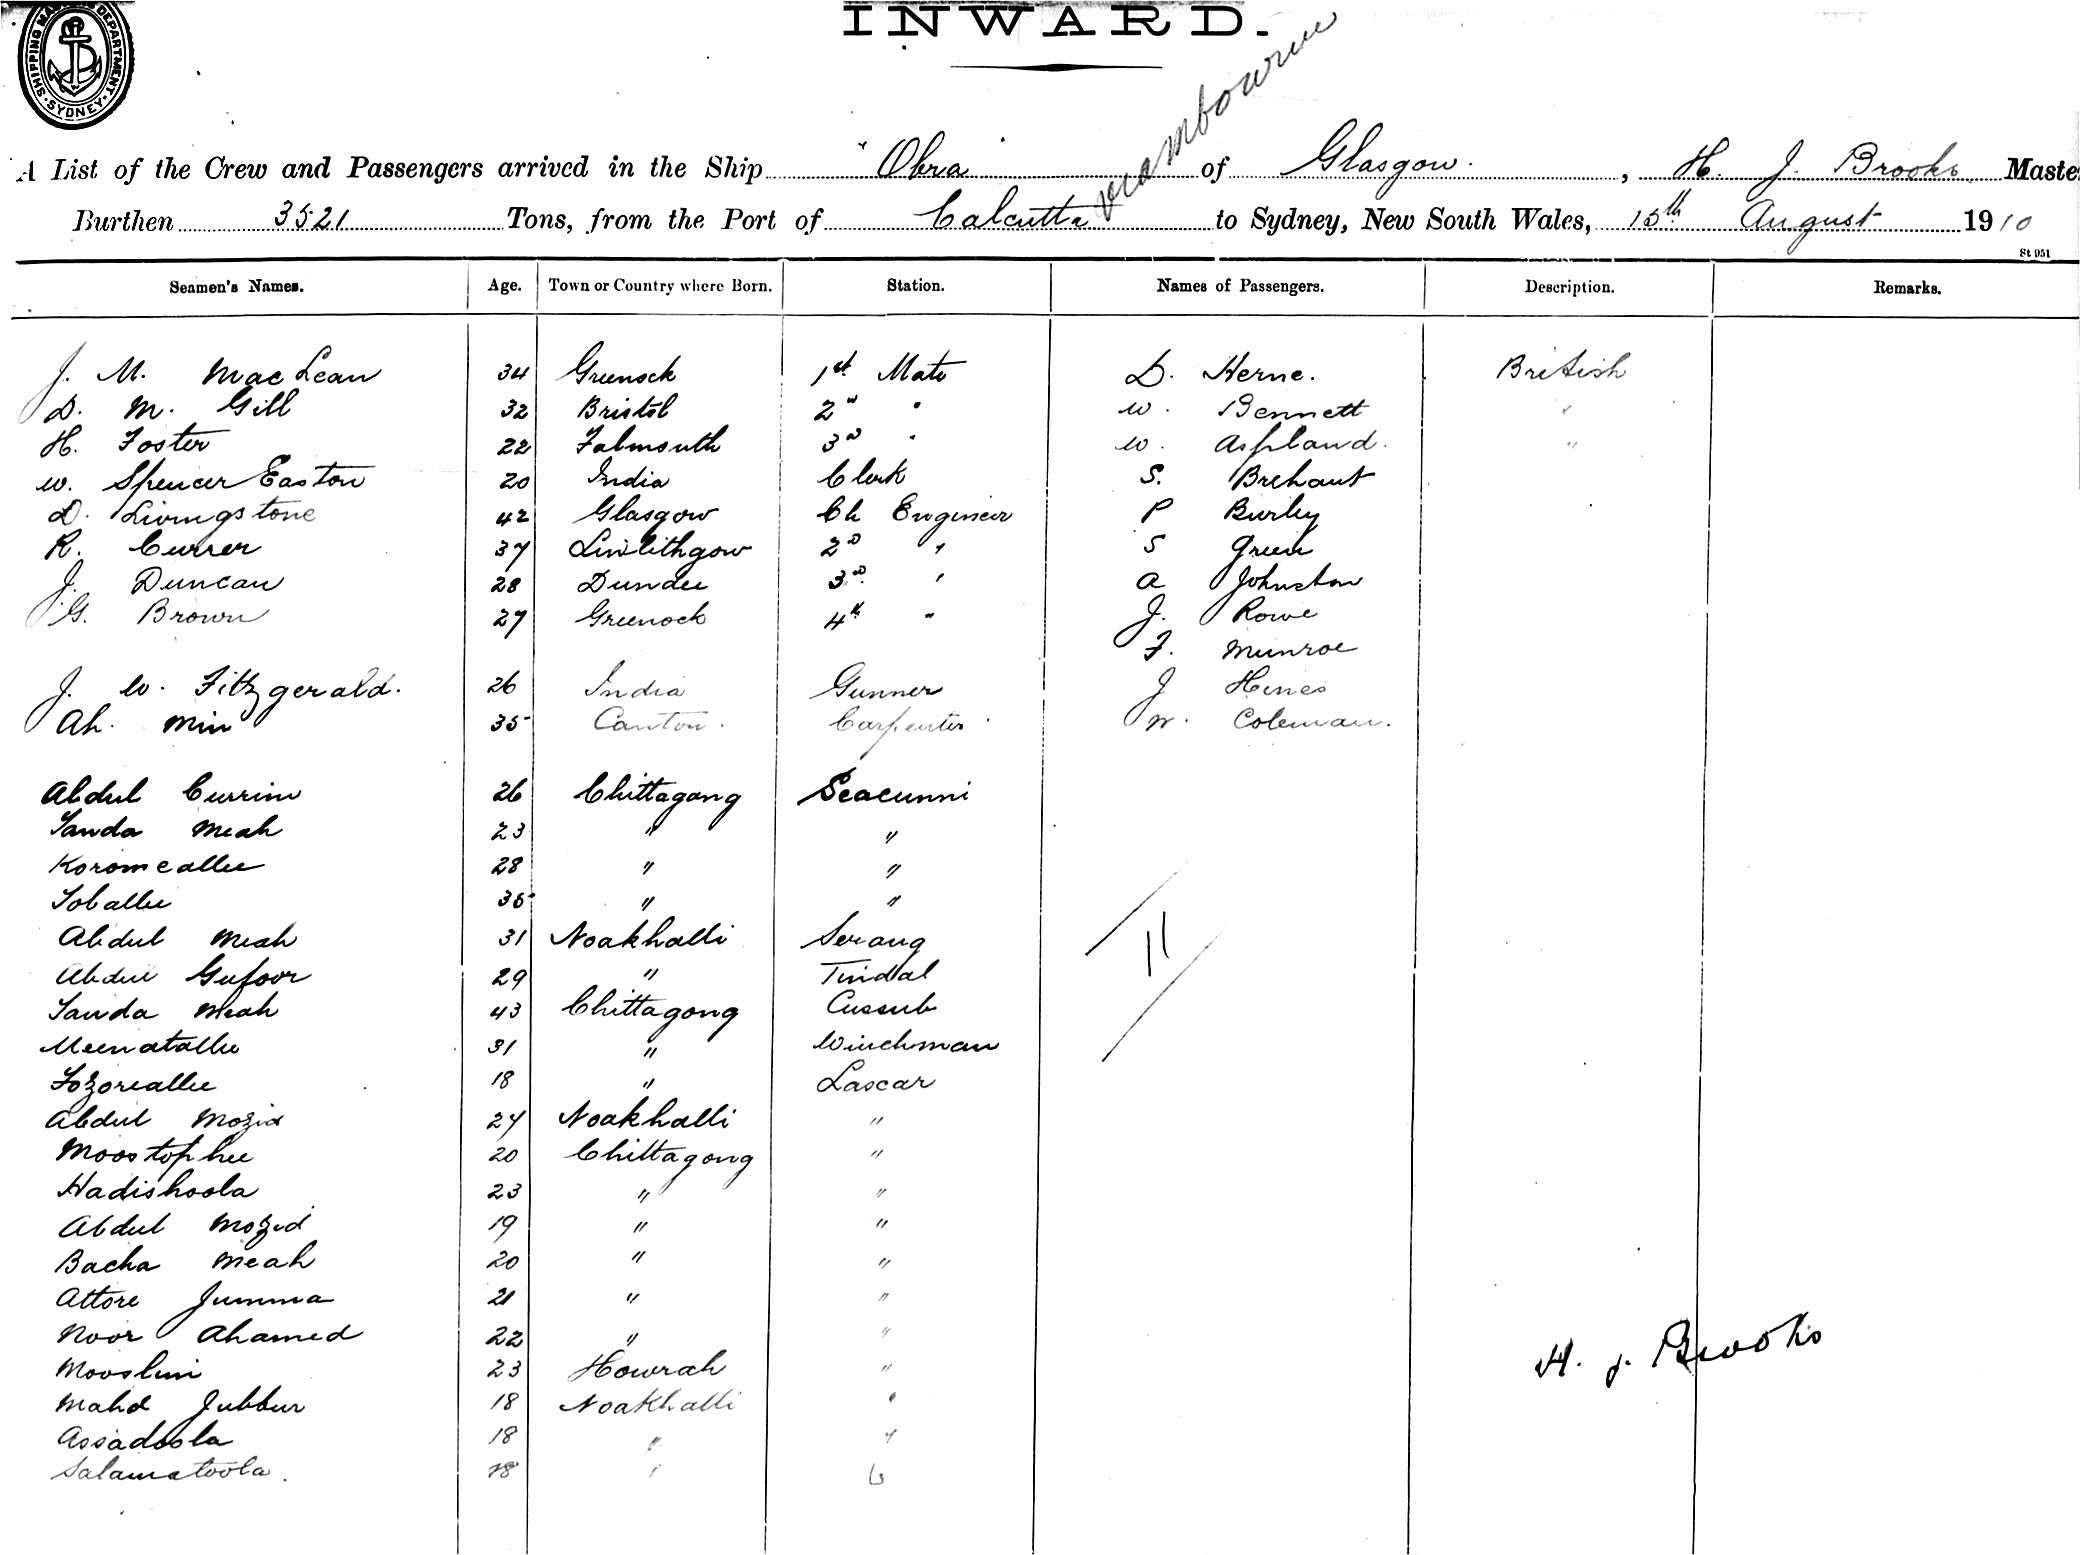 INWARD.
SHIPPING MASTER'S DEPARTMENT. SYDNEY.
A List of the Crew and Passengers arrived in the Ship "Obra" of Glasgow. , H. J. Brooks Master
Burthen 3521 Tons, from the Port of Calcutta to Sydney, New South Wales, 15th August 1910
St 951
Seamen's Names. Age. Town or Country where Born. Station. Names of Passengers. Description. Remarks.
J. M. MacLean 34 Greenock 1st Mate D. Herne. British
D. M. Gill 32 Bristol 2nd " W. Bennett "
H. Foster 22 Falmouth 3rd " W. Aspland. "
W. Spencer Easton 20 India Clerk S. Brehaut
D. Livingstone 42 Glasgow Ch Engineer P Burley
R. Currer 37 Linlithgow 2nd " S Green
J. Duncan 28 Dundee 3rd " A Johnston
J. G. Brown 27 Greenock 4th " J. Rowe
F. Munroe
J. W. Fitzgerald. 26 India Gunner J Hines
Ah. Min 35 Canton. Carpenter W. Coleman.
Abdul Currim 26 Chittagong Seacunni
Tanda Meah 23 " "
Koromeallee 28 " "
Toballee 35 " "
Abdul Meah 31 Noakhalli Serang
Abdul Gufoor 29 " Tindal
Tanda Meah 43 Chittagong Cussub
Meenatallee 31 " Winchman
Fozoreallee 18 " Lascar
Abdul Mozid 24 Noakhalli "
Moostophee 20 Chittagong "
Hadishoola 23 " "
Abdul Mozid 19 " "
Bacha Meah 20 " "
Attore Jumma 21 " "
Noor Ahamed 22 " "
Mooslim 23 Howrah "
Mahd Jubbur 18 Noakhalli "
Assadoola 18 " "
Salamatoola. 18 " "
11
H. J. Brooks